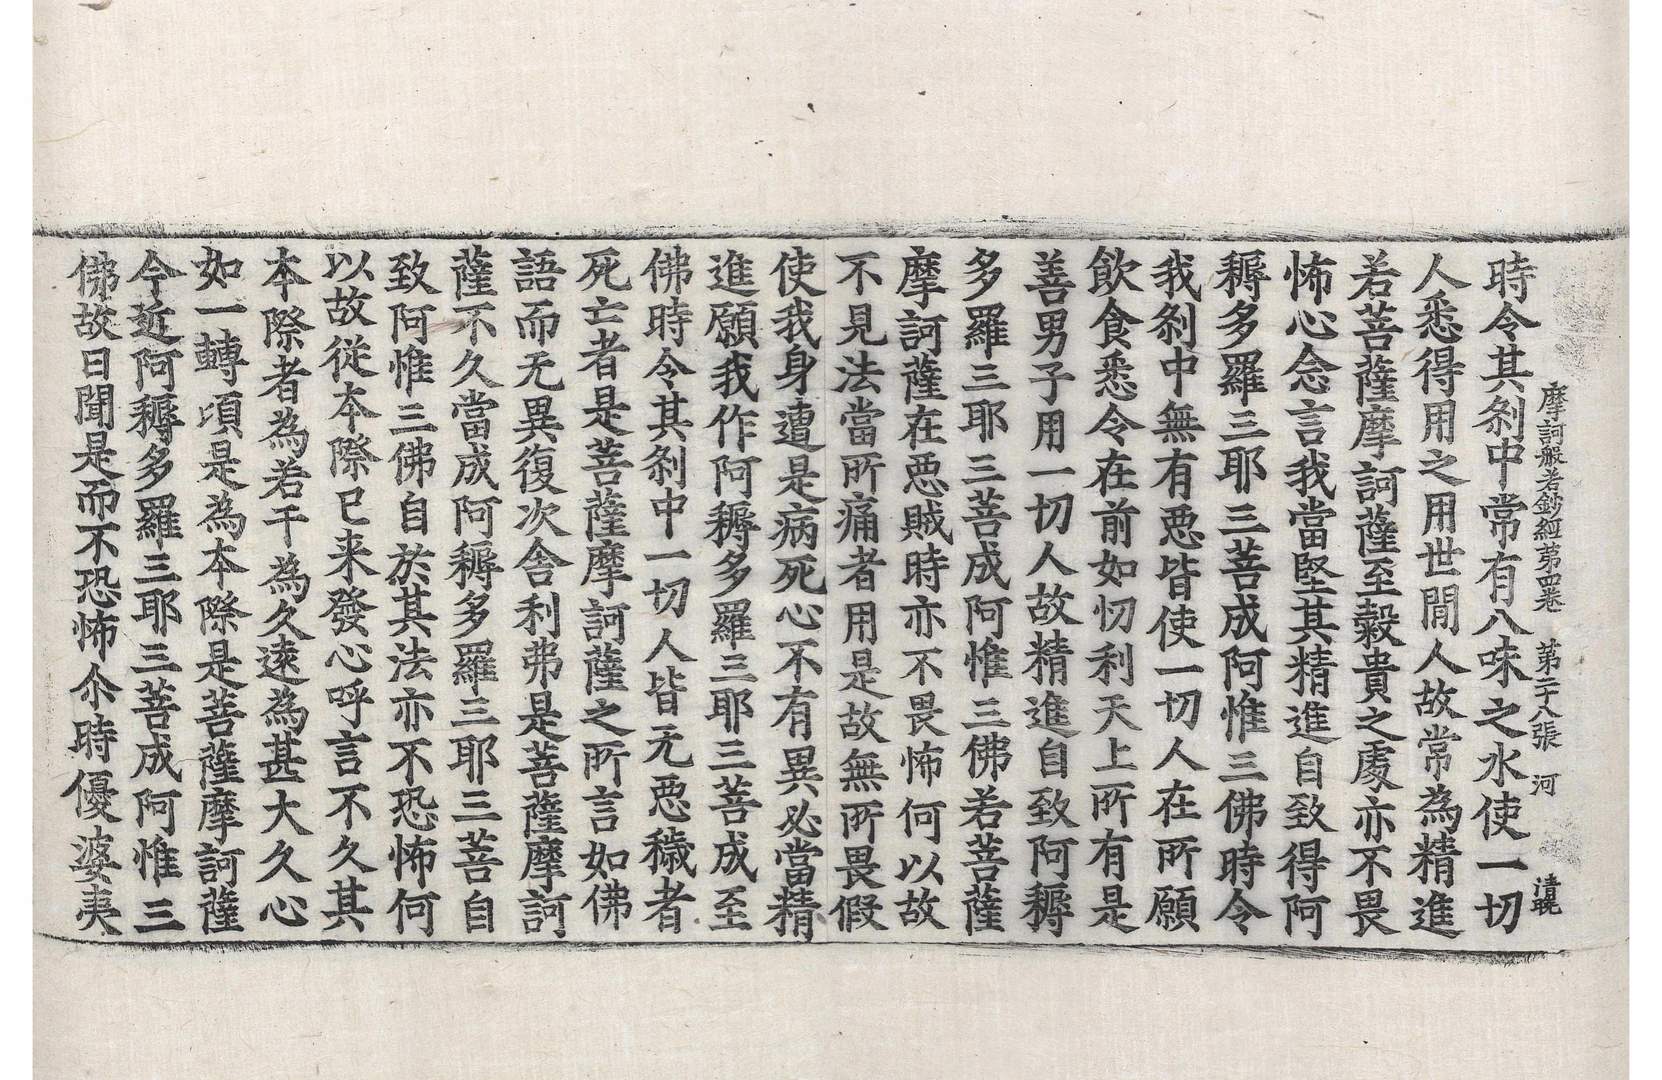 摩訶般若鈔經第四卷 第二十八張 河 清晛
時令其刹中常有八味之水使一切
人悉得用之用世間人故常為精進
若菩薩摩訶薩至穀貴之處亦不畏
怖心念言我當堅其精進自致得阿
耨多羅三耶三菩成阿惟三佛時令
我刹中無有惡皆使一切人在所願
飲食悉令在前如忉利天上所有是
善男子用一切人故精進自致阿耨
多羅三耶三菩成阿惟三佛若菩薩
摩訶薩在惡賊時亦不畏怖何以故
不見法當所痛者用是故無所畏假
使我身遭是病死心不有異必當精
進願我作阿耨多羅三耶三菩成至
佛時令其刹中一切人皆无惡穢者
死亡者是菩薩摩訶薩之所言如佛
語而无異復次舍利弗是菩薩摩訶
薩不久當成阿耨多羅三耶三菩自
致阿惟三佛自於其法亦不恐怖何
以故從本際已来發心呼言不久其
本際者為若干為久遠為甚大久心
如一轉頃是為本際是菩薩摩訶薩
今近阿耨多羅三耶三菩成阿惟三
佛故曰聞是而不恐怖尒時優婆夷